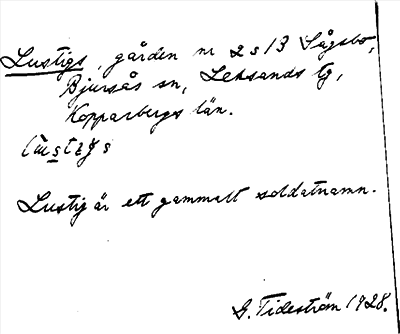 Lustigs, gården nr 2 o 13 Sågsbo,
Bjursås sn, Leksands tg,
Kopparbergs län.
Lustig är ett gammalt soldatnamn.
G. Tideström 1928.